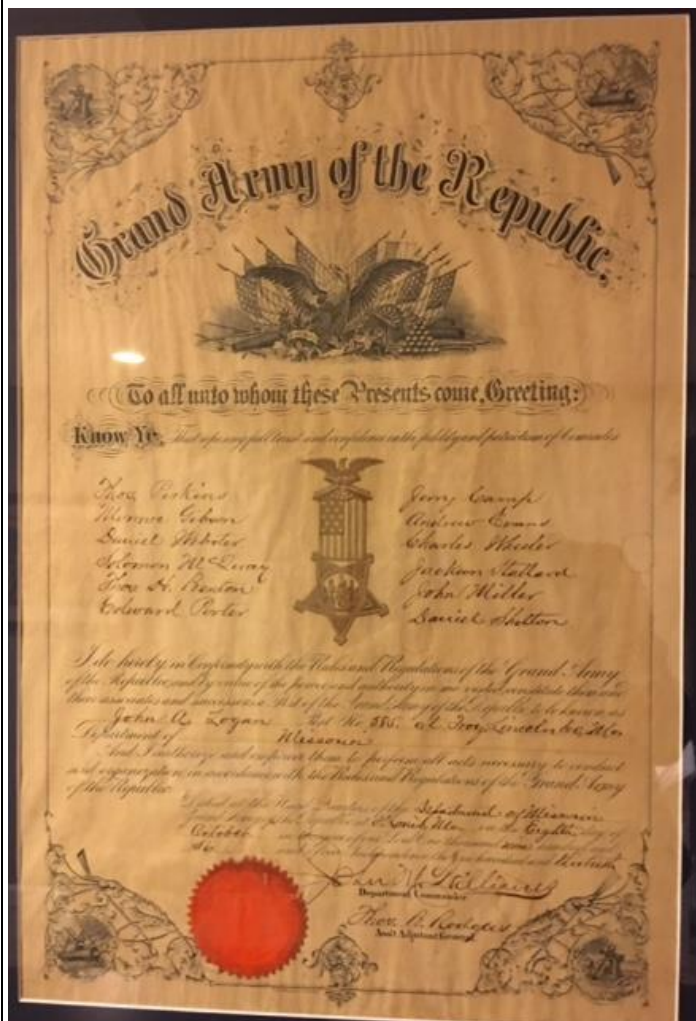 Grand Army of the Republic.
To all unto whom these Presents come, Greeting:
Know Ye, That reposing full trust and confidence in the fidelity and patriotism of Comrades
Thos Perkins
Jerry Camp
Monroe Gibson
Andrew Evans
Daniel Webster
Charles Wheeler
Solomon McElroy
Jackson Stallard
Thos H. Benton
John Miller
Edward Porter
Daniel Shelton
I do hereby, in Conformity with the Rules and Regulations of the Grand Army
of the Republic, and by virtue of the power and authority in me vested, constitute them and
their associates and successors a Post of the Grand Army of the Republic, to be known as
John A. Logan Post No. at Troy, Lincoln Co, Mo
Department of Missouri
And I authorize and empower them to perform all acts necessary to conduct
said organization, in accordance with the Rules and Regulations of the Grand Army
of the Republic.
Dated at the Head Quarters of the Department of Missouri
Grand Army of the Republic at Mo on the Eighth day of
October in the year of our Lord one thousand
and of our Independence the one hundred and
Department Commander
Thos. B. Rodgers
Ass't Adjutant General